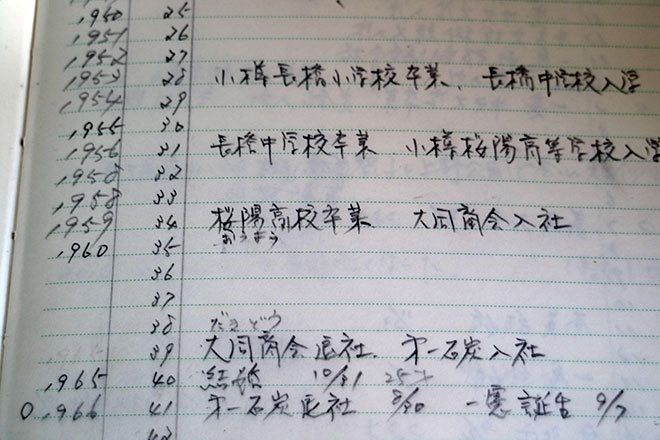 1950 25
1951 26
1952 27
1953 28 小樽長橋小学校卒業、長橋中学校入学
1954 29
1955 30
1956 31 長橋中学校卒業 小樽桜陽高等学校入学
1958 32
1958 33
1959 34 桜陽高校卒業 大同商会入社
おうよう
1960 35
36
37
38 だいどう
39 大同商会退社、第一石炭入社
1965 40 結婚 10/31 25才
0 1966 41 第一石炭退社 8/30 一憲誕生 9/7
42